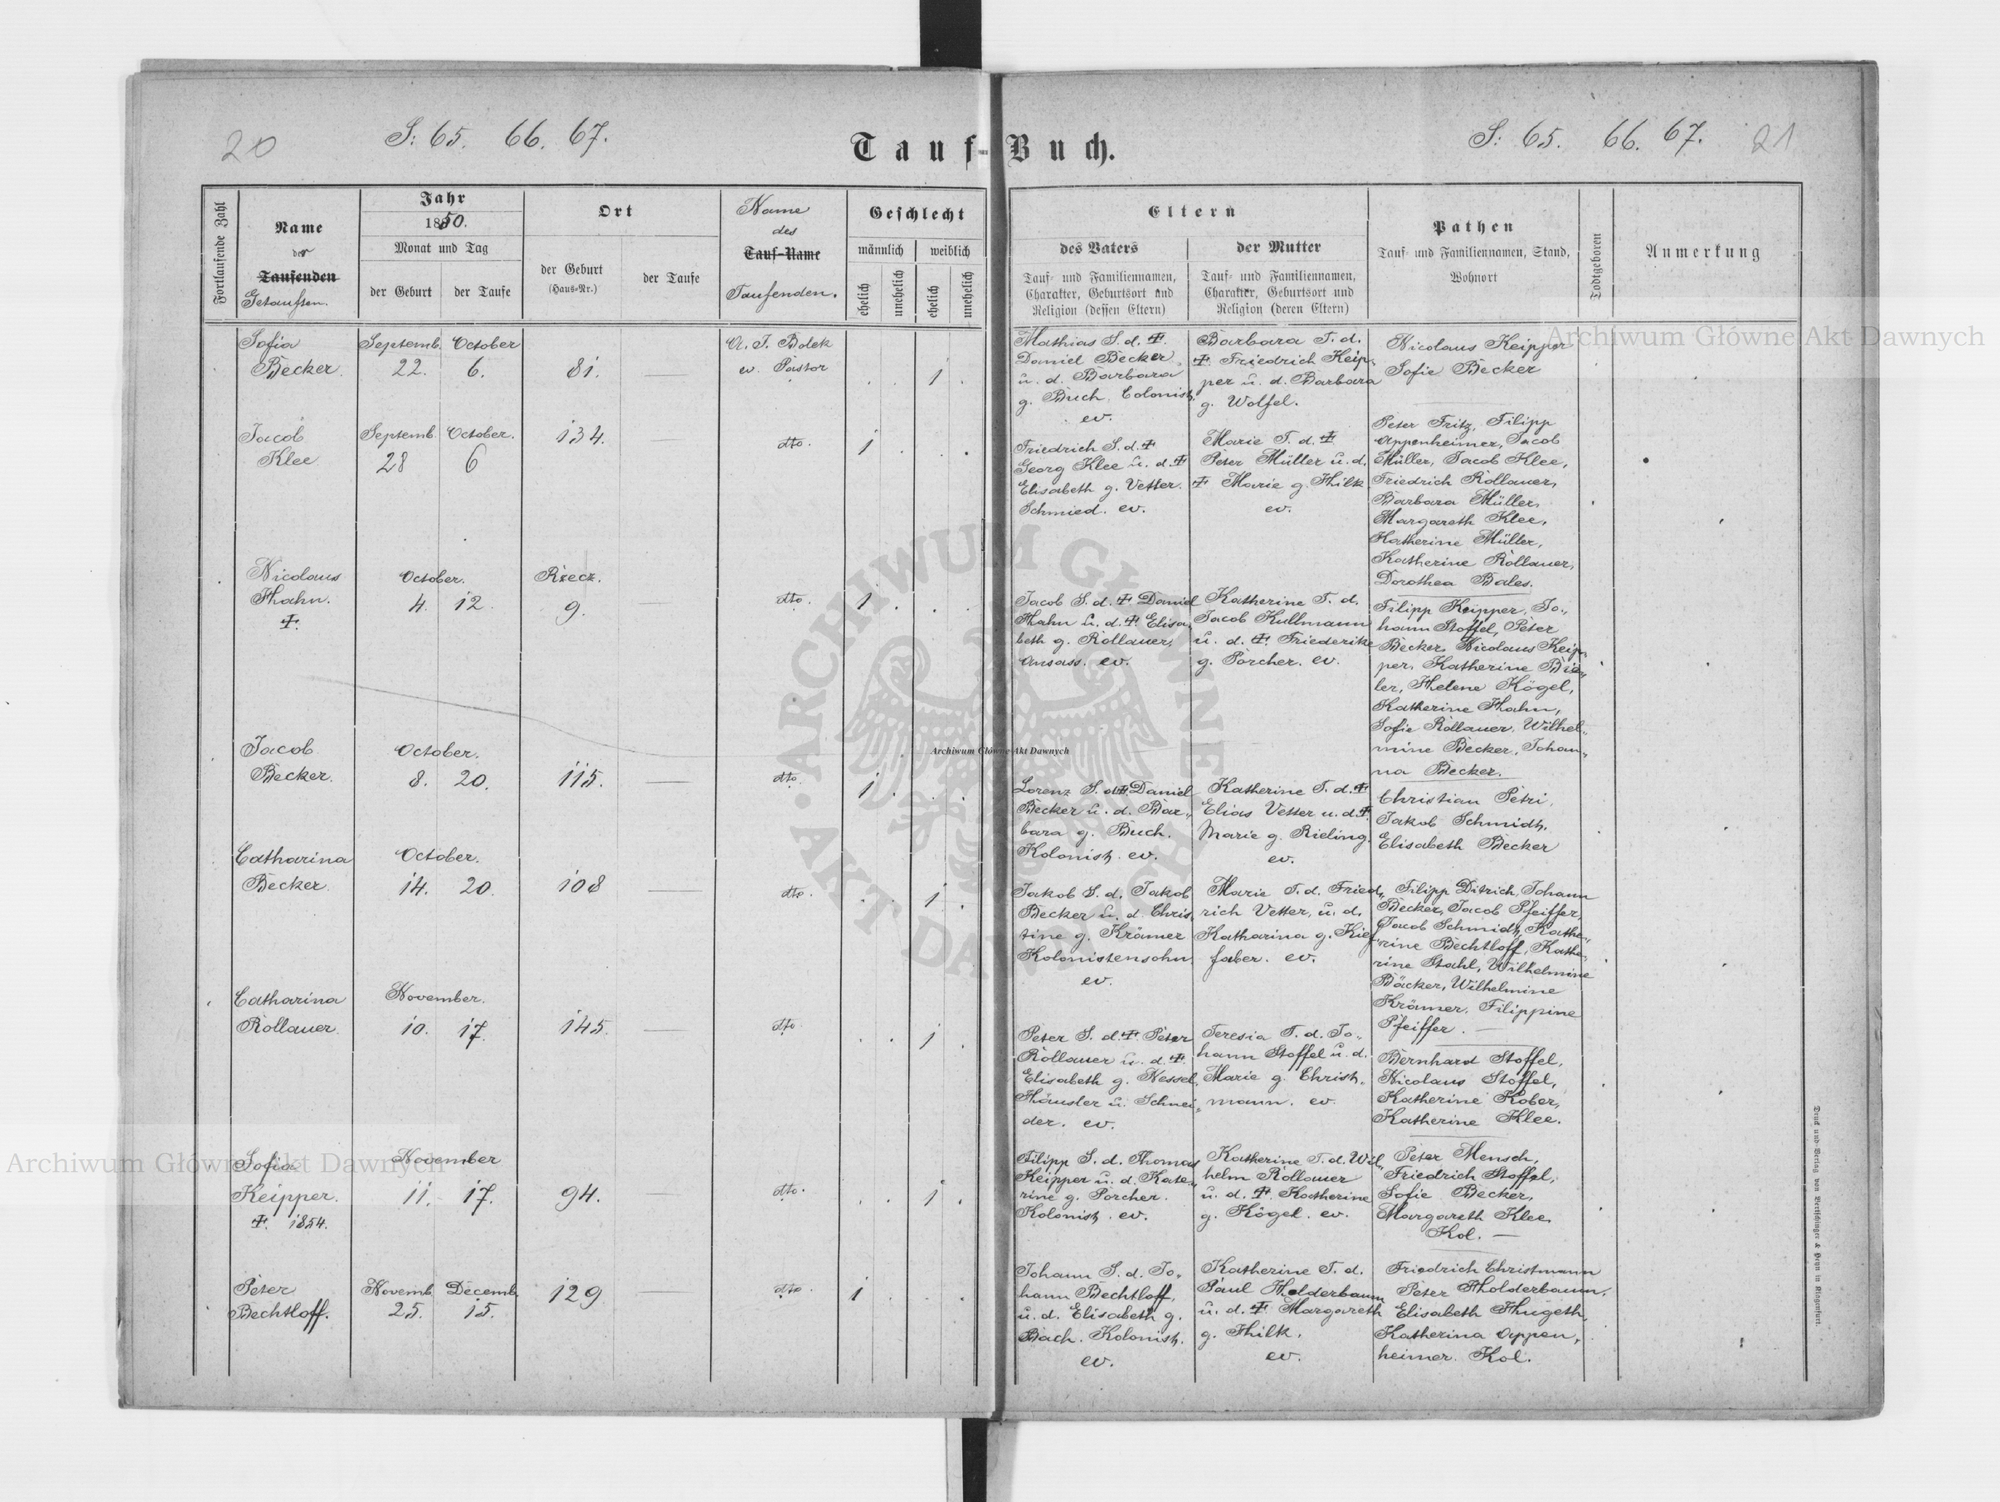 20
S: 65. 66. 67.
Tauf-Buch.
S: 65. 66. 67.
21
Fortlaufende Zahl
Name
der
Taufenden
Getauften.
Jahr
1850.
Monat und Tag
der Geburt
der Taufe
Ort
der Geburt
(Haus-Nr.)
der Taufe
Name
des
Tauf-Name
Taufenden.
Geschlecht
männlich
weiblich
ehelich
unehelich
ehelich
unehelich
Eltern
des Vaters
Tauf- und Familiennamen,
Charakter, Geburtsort und
Religion (dessen Eltern)
der Mutter
Tauf- und Familiennamen,
Charakter, Geburtsort und
Religion (deren Eltern)
Pathen
Tauf- und Familiennamen, Stand,
Wohnort
Todtgeboren
Anmerkung
Sofia
Becker.
Septemb. October
22. 6.
81.
A. T. Bolek
ev. Pastor
1
Mathias S. d. ✝.
Daniel Becker
u. d. Barbara
g. Buch, Colonist,
ev.
Barbara T. d.
✝ Friedrich Keip-
per u. d. Barbara
g. Wolfel.
Nicolaus Keipper
Sofie Becker
Jacob
Klee
Septemb. October.
28 6
134.
dto.
1
Friedrich S. d. ✝
Georg Klee u. d. ✝
Elisabeth g. Vetter.
Schmied. ev.
Marie T. d. ✝
Peter Müller u. d.
✝ Marie g. Hilk
ev.
Peter Fritz, Filipp
Oppenheimer, Jacob
Müller, Jacob Klee,
Friedrich Rollauer,
Barbara Müller,
Margareth Klee,
Katherine Müller,
Katherine Rollauer,
Dorothea Bales.
Nicolaus
Hahn.
✝.
October.
4. 12.
Rzecz.
9.
dto.
1
Jacob S. d. ✝ Daniel
Hahn u. d. ✝ Elisa-
beth g. Rollauer,
Ansass. ev.
Katherine T. d.
Jacob Kullmann
u. d. ✝ Friederike
g. Porcher. ev.
Filipp Keipper, Jo-
hann Stoffel, Peter
Becker, Nicolaus Keip-
per, Katherine
ler, Helene Kögel,
Katherine Hahn,
Sofie Rollauer, Wilhel-
mine Becker, Johan-
na Becker.
Jacob
Becker.
October.
8. 20.
115.
dto.
1
Lorenz S. d. ✝ Daniel
Becker u. d. Bar-
bara g. Buch.
Kolonist. ev.
Katherine T. d. ✝
Elias Vetter u. d. ✝.
Marie g. Rieling.
ev.
Christian Petri,
Jakob Schmidt,
Elisabeth Becker
Catharina
Becker.
October.
14. 20.
108
dto.
1
Jakob S. d. Jakob
Becker u. d. Chris-
tine g. Krämer
Kolonistensohn,
ev.
Marie T. d. Fried-
rich Vetter, u. d.
Katharina g. Kief-
faber. ev.
Filipp Ditrich, Johann
Becker, Jacob Pfeiffer,
Jacob Schmidt, Kathe-
rine Bechtloff, Kathe-
rine Stahl, Wilhelmine
Bäcker, Wilhelmine
Krämer, Filippine
Pfeiffer.
Catharina
Rollauer.
November.
10. 17.
145.
dto.
1
Peter S. d. ✝. Peter
Rollauer u. d. ✝.
Elisabeth g. Kessel,
Häusler u. Schnei-
der. ev.
Teresia T. d. Jo-
hann Stoffel u. d.
Marie g. Christ-
mann. ev
Bernhard Stoffel,
Nicolaus Stoffel,
Katherine Kober,
Katherine Klee.
Sofia
Keipper.
✝. 1854.
November
11. 17.
94.
dto.
1
Filipp S. d. Thomas
Keipper u. d. Kate-
rine g. Porcher.
Kolonist. ev.
Katherine T. d. Wil-
helm Rollauer
u. d. ✝. Katherine
g. Kögel. ev.
Peter Mensch,
Friedrich Stoffel,
Sofie Becker,
Margareth Klee
Kol.
Peter
Bechtloff.
Novemb. Decemb.
25. 15.
129
dto.
1
Johann S. d. Jo-
hann Bechtloff
u. d. Elisabeth g.
Bach. Kolonist.
ev.
Katherine T. d.
Paul Holderbaum
u. d. ✝ Margareth
g. Hilk.
ev.
Friedrich Christmann
Peter Holderbaum,
Elisabeth Hugeth,
Katharina Oppen-
heimer. Kol.
Druck und Verlag von Bertschinger & Heyn in Klagenfurt.
Archiwum Główne Akt Dawnych
Archiwum Główne Akt Dawnych
Archiwum Główne Akt Dawnych
ARCHIWUM GŁÓWNE AKT DAWNYCH